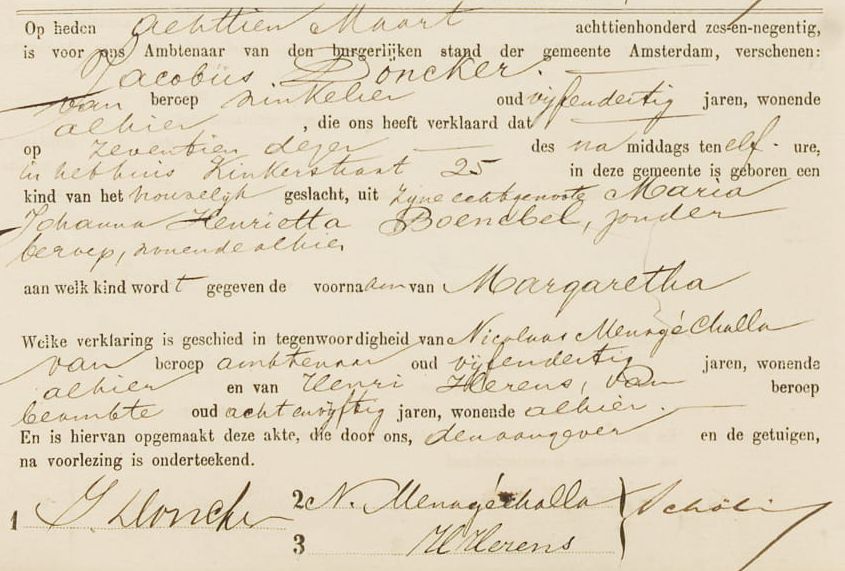 Op heden achttien Maart achttienhonderd zes-en-negentig,
is voor ons Ambtenaar van den burgerlijken stand der gemeente Amsterdam, verschenen:
Jacobus Döncker.
van beroep winkelier oud vijfendertig jaren, wonende
alhier, die ons heeft verklaard dat
op zeventien dezer des na middags ten elf ure,
in het huis Kinkerstraat 25 in deze gemeente is geboren een
kind van het vrouwelijk geslacht, uit zijne echtgenoote Maria
Johanna Henrietta zonder
beroep, wonende alhier
aan welk kind wordt gegeven de voornaam van Margaretha
Welke verklaring is geschied in tegenwoordigheid van Nicolaas Menagé Challa
van beroep ambtenaar oud vijfendertig jaren, wonende
alhier en van Henri Herens, van beroep
beambte oud achtenvijftig jaren, wonende alhier.
En is hiervan opgemaakt deze akte, die door ons, den aangever en de getuigen,
na voorlezing is onderteekend.
1 J. Döncker 2 N. Menagé Challa
3 H Herens